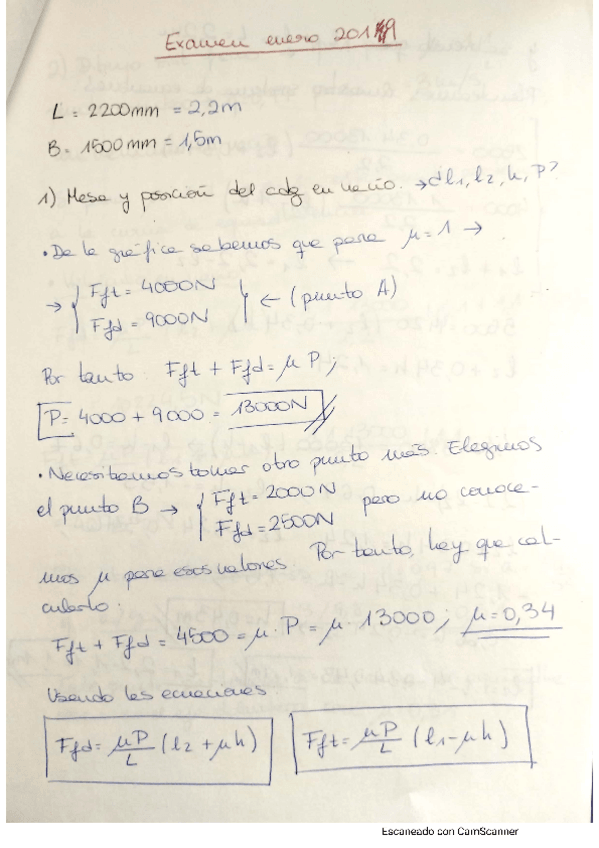 Examen enero 2019
L = 2200mm = 2,2m
B = 1500mm = 1,5m
1) Masa y posición del cdg en vacío. → d l1, l2, h, P?
• De la gráfica sabemos que para μ = 1 →
→ { Fft = 4000N
Ffd = 9000N } ← (punto A)
Por tanto: Fft + Ffd = μ P ;
P = 4000 + 9000 = 13000N //
• Necesitamos tomar otro punto más. Elegimos
el punto B → { Fft = 2000N
Ffd = 2500N pero no conoce-
mos μ para esos valores. Por tanto, hay que cal-
cularlo:
Fft + Ffd = 4500 = μ · P = μ · 13000 ; μ = 0,34
Usando las ecuaciones:
Ffd = μP/L (l2 + μh) Fft = μP/L (l1 - μh)
Escaneado con CamScanner